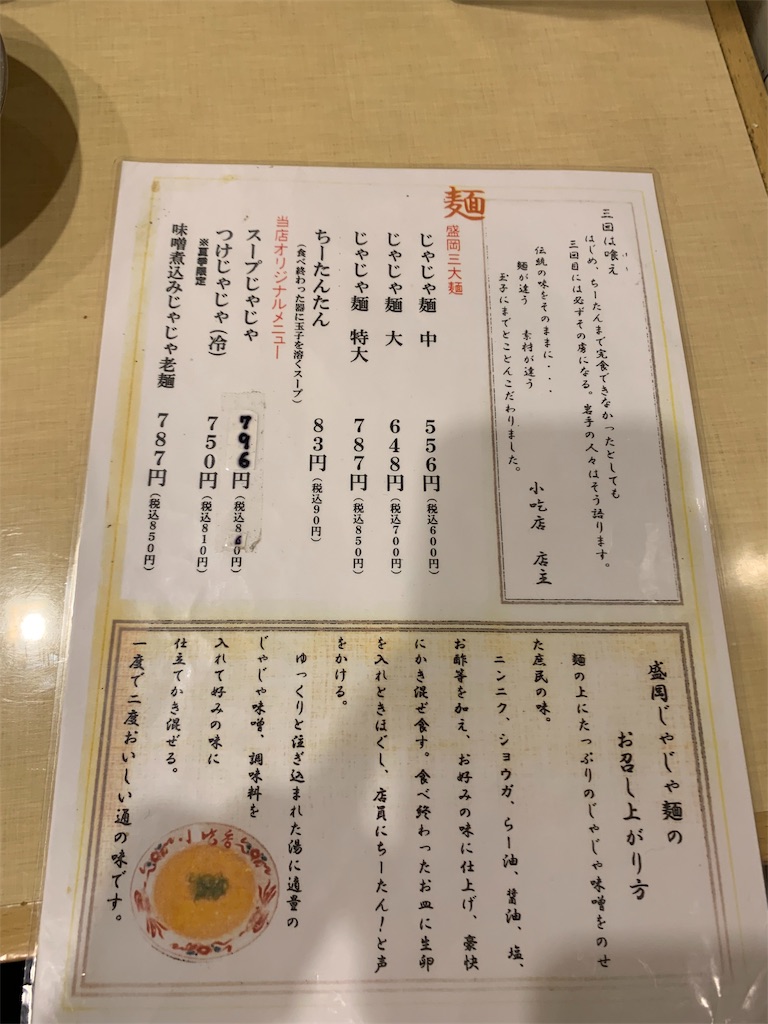 三回は喰え
はじめ、ちーたんまで完食できなかったとしても
三回目には必ずその虜になる。岩手の人々はそう語ります。
伝統の味をそのままに・・・
麺が違う 素材が違う
玉子にまでとことんこだわりました。
小吃店 店主
麺
盛岡三大麺
じゃじゃ麺 中 556円(税込600円)
じゃじゃ麺 大 648円(税込700円)
じゃじゃ麺 特大 787円(税込850円)
ちーたんたん 83円(税込90円)
(食べ終わった器に玉子を溶くスープ)
当店オリジナルメニュー
スープじゃじゃ 796円(税込860円)
つけじゃじゃ(冷) 750円(税込810円)
※夏季限定
味噌煮込みじゃじゃ老麺 787円(税込850円)
盛岡じゃじゃ麺の
お召し上がり方
麺の上にたっぷりのじゃじゃ味噌をのせ
た庶民の味。
ニンニク、ショウガ、らー油、醤油、塩、
お酢等を加え、お好みの味に仕上げ、豪快
にかき混ぜ食す。食べ終わったお皿に生卵
を入れときほぐし、店員にちーたん!と声
をかける。
ゆっくりと注ぎ込まれた湯に適量の
じゃじゃ味噌、調味料を
入れて好みの味に
仕立てかき混ぜる。
一度で二度おいしい通の味です。